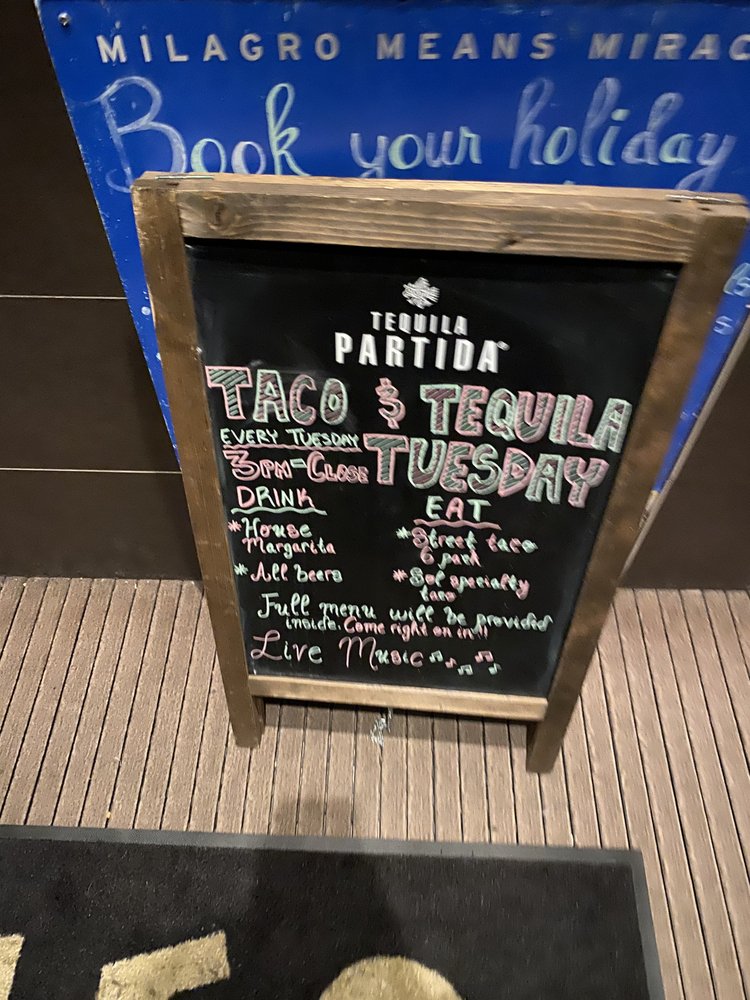 MILAGRO MEANS MIRAC
Book your holiday
TEQUILA
PARTIDA
TACO & TEQUILA
EVERY TUESDAY
TUESDAY
3PM-CLOSE
DRINK
* House
Margarita
* All beers
EAT
* Street taco
6 pack
* Sol specialty
taco
Full menu will be provided
inside. Come right on in!!
Live Music